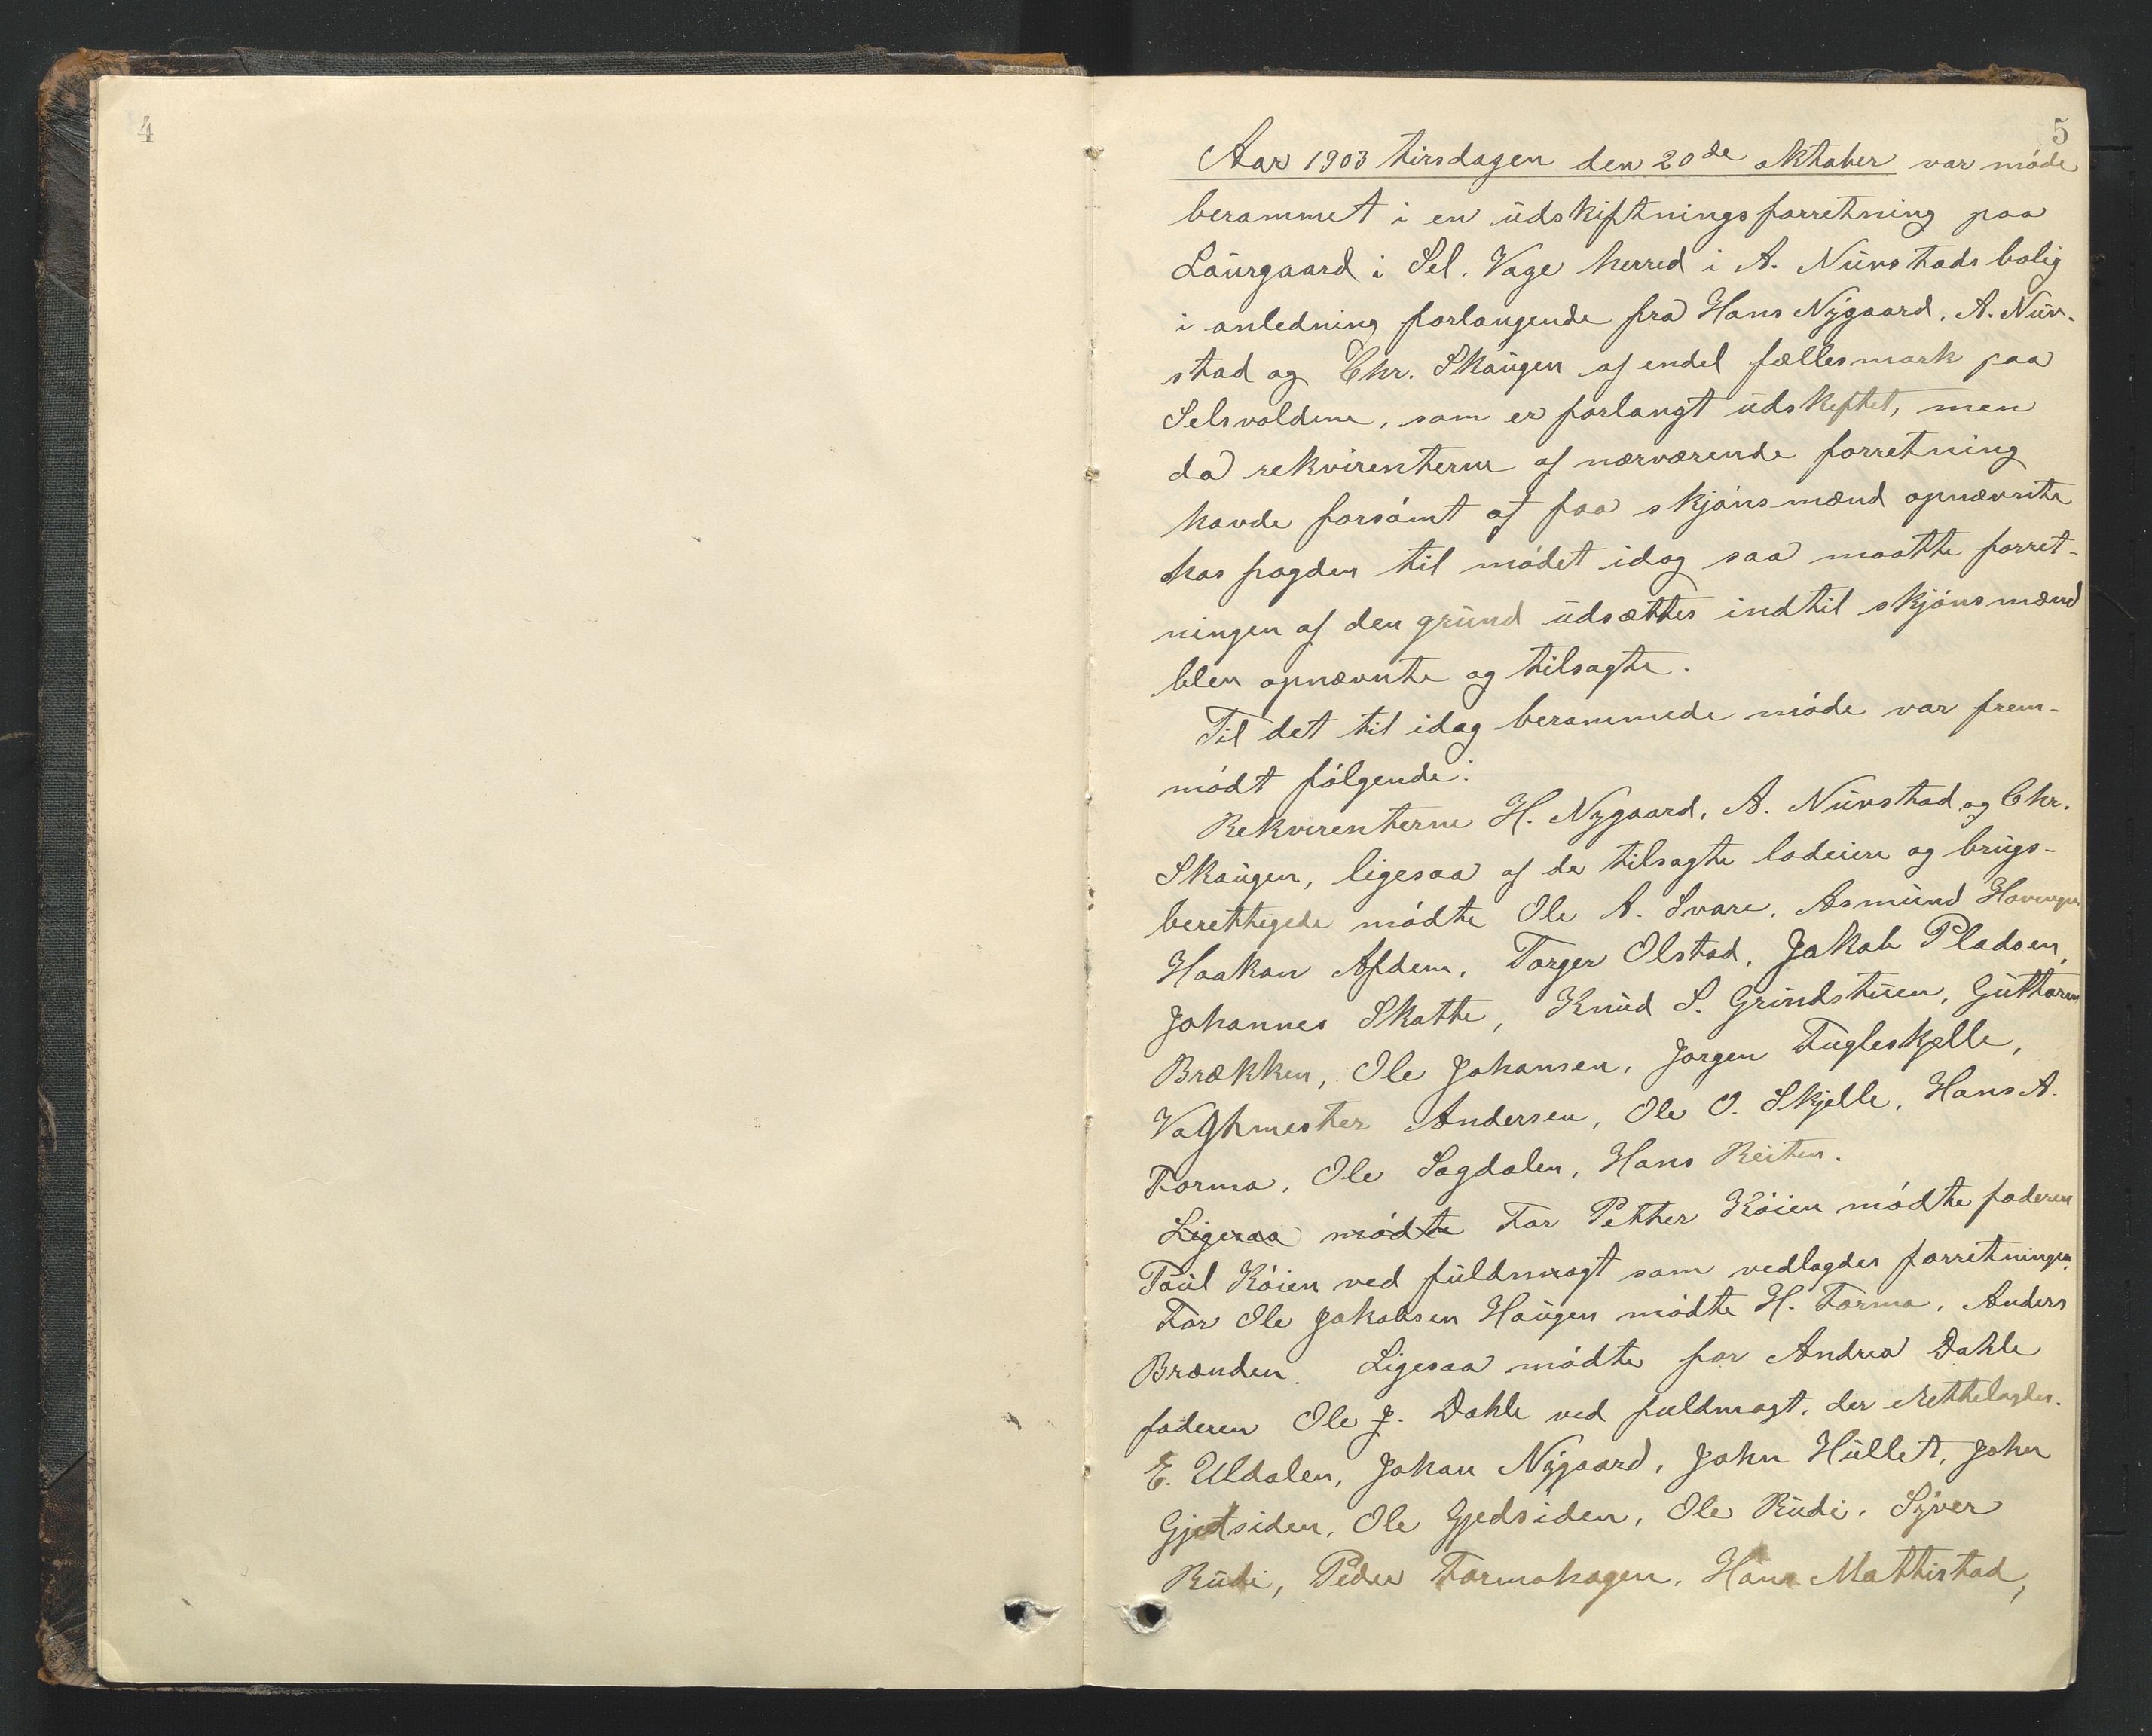 4
5
Aar 1903 tirsdagen den 20de oktober var møde
berammet i en udskiftningsforretning paa
Laurgaard i Sel. Vage herred i A. Nurstads bolig
i anledning forlangende fra Hans Nygaard, A. Nur-
stad og Chr. Skaugen af endel fællesmark paa
Selsvoldene, som er forlangt udskiftet, men
da rekvirenterne af nærværende forretning
havde forsømt af faa skjønsmænd opnævnte
hos fogden til mødet idag saa maatte forret-
ningen af den grund udsættes indtil skjønsmænd
blev opnævnte og tilsagte.
Til det til idag berammede møde var frem-
mødt følgende:
Rekvirenterne H. Nygaard, A. Nurstad og Chr.
Skaugen, ligesaa af de tilsagte lodeiere og brugs-
berettigede mødte Ole A. Svare, Asmund Haugen
Haakon Afdem, Torger Olstad, Jakob Pladsen,
Johannes Skotte, Knud S. Grindstuen, Guttorm
Brækken, Ole Johansen, Jørgen Fugleskjelle,
Vagtmester Andersen, Ole O. Skjelle, Hans A.
Formo, Ole Sagdalen, Hans Reiten.
Ligesaa mødte For Petter Køien mødte faderen
Poul Køien ved fuldmagt som vedlagdes forretningen.
For Ole Jakobsen Haugen mødte H. Formo, Anders
Brænden. Ligesaa mødte for Andrea Dahle
faderen Ole J. Dahle ved fuldmagt, der rettelagdes.
E. Uldalen, Johan Nygaard, John Hullet, John
Gjetsiden, Ole Gjedsiden, Ole Rudi, Syver
Rudi, Peder Formohagen, Hans Mattistad,